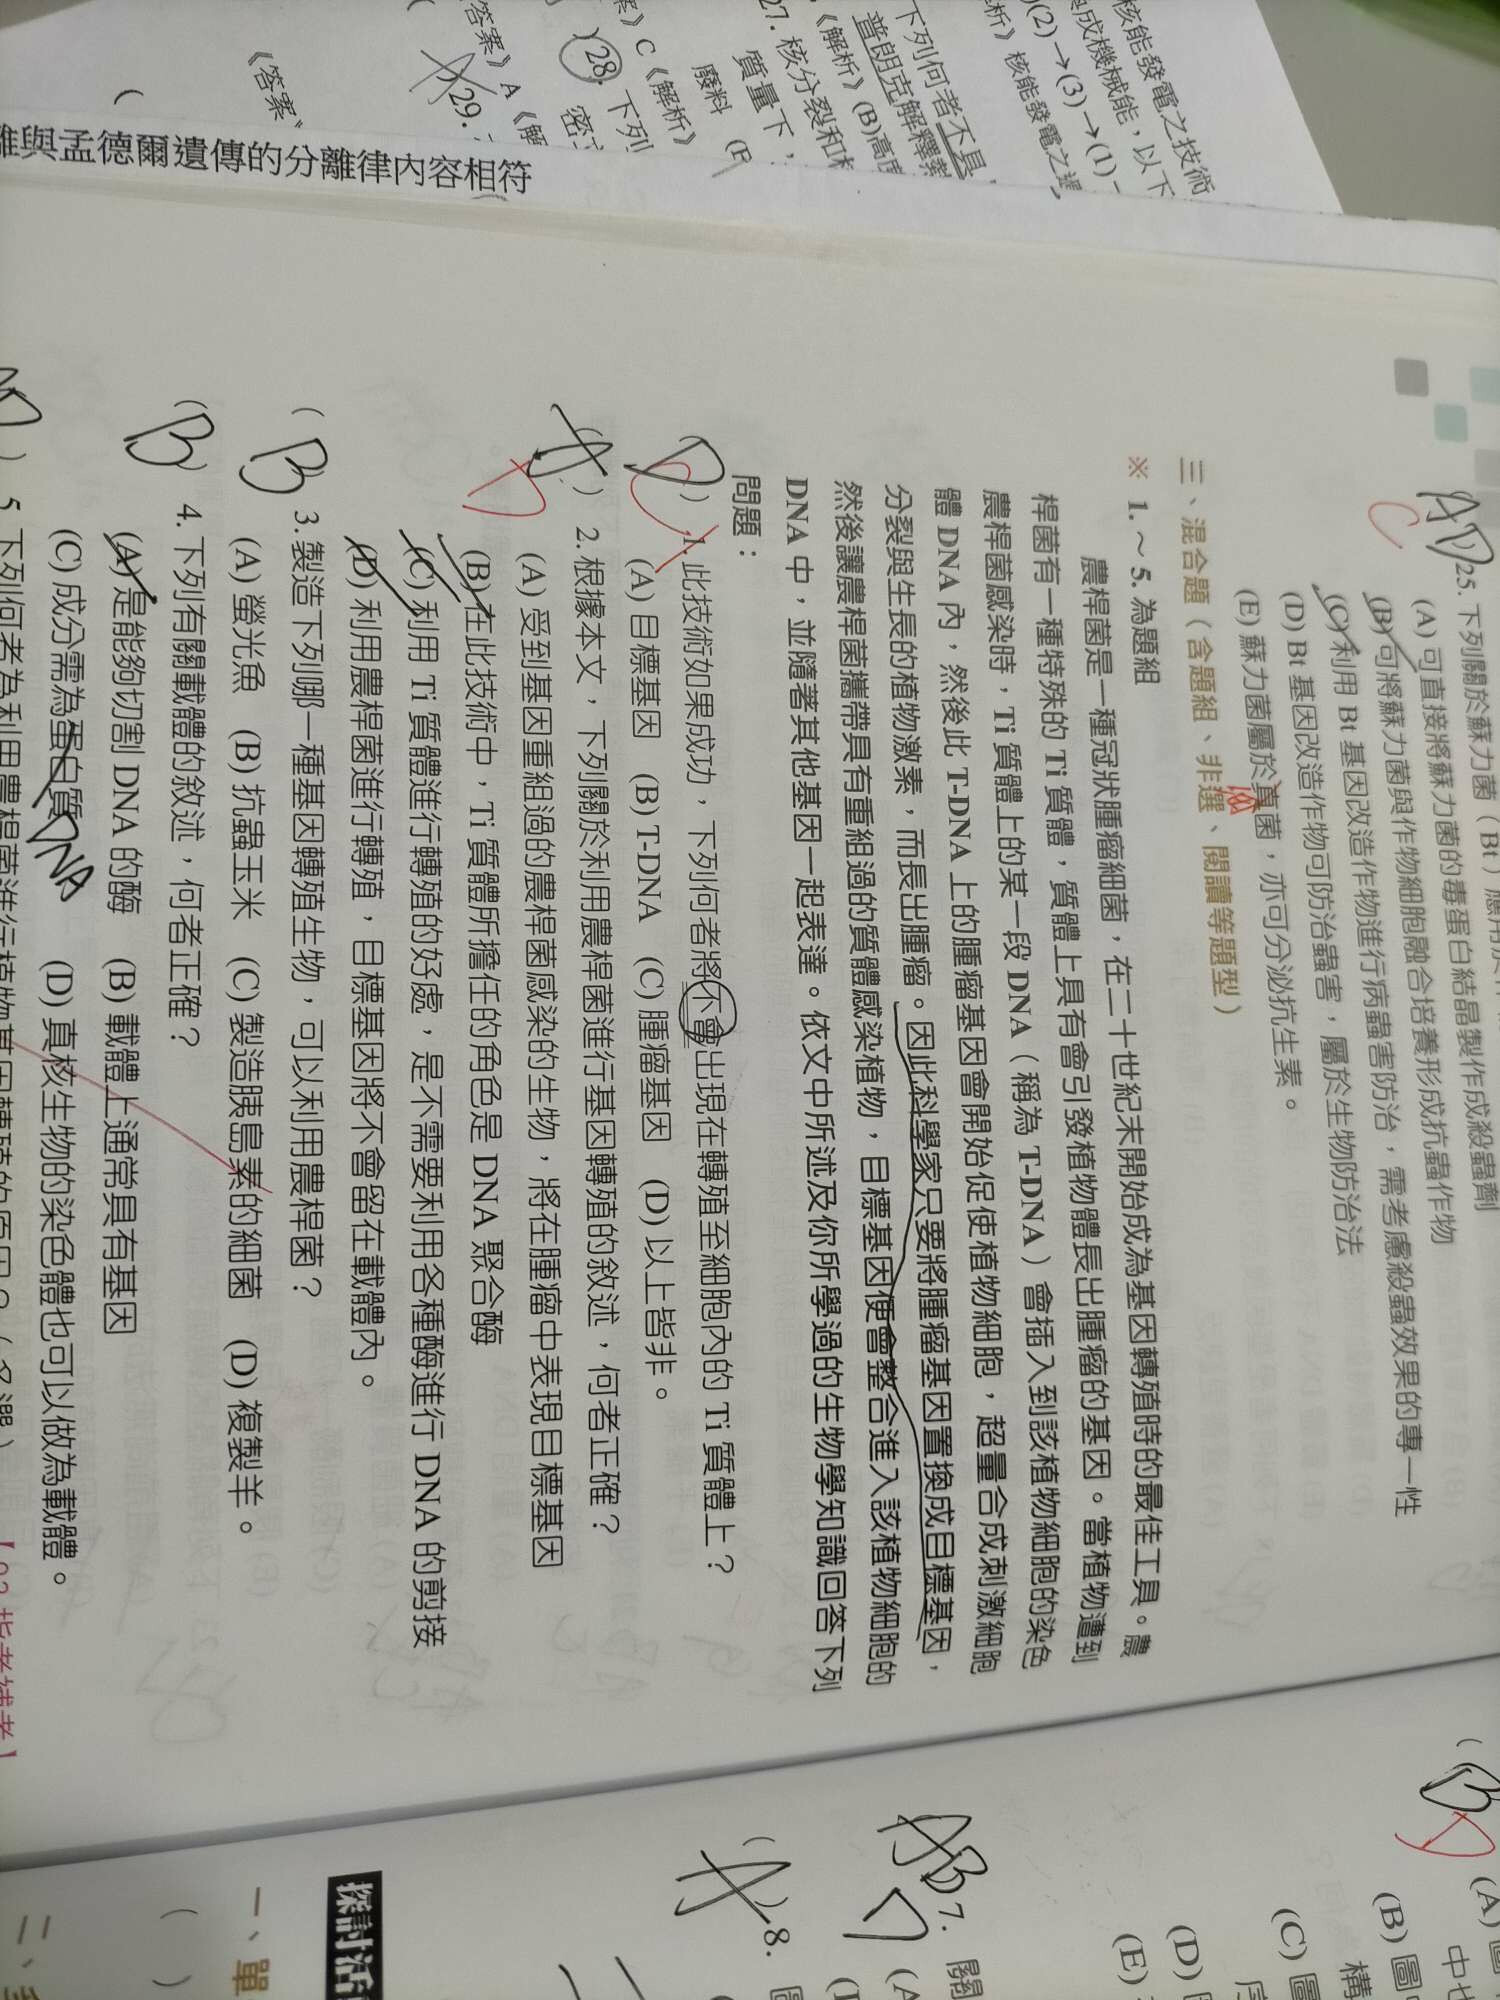 核能發電之技術
成機械能，以下
(2)→(3)→(1)
析》核能發電之
下列何者不是
普朗克解釋
《解析》(B)高
27. 核分裂和
質量下，
廢料
C《解析》
28. 下列
密
答案》A《解
29.
《答案》
與孟德爾遺傳的分離律內容相符
AD
C
25. 下列關於蘇力菌（Bt）應用
(A) 可直接將蘇力菌的毒蛋白結晶製作成殺蟲劑
(B) 可將蘇力菌與作物細胞融合培養形成抗蟲作物
(C) 利用 Bt 基因改造作物進行病蟲害防治，需考慮殺蟲效果的專一性
(D) Bt 基因改造作物可防治蟲害，屬於生物防治法
(E) 蘇力菌屬於真菌，亦可分泌抗生素。
三、混合題（含題組、非選、閱讀等題型）
※ 1. ～ 5. 為題組
農桿菌是一種冠狀腫瘤細菌，在二十世紀末開始成為基因轉殖時的最佳工具。農
桿菌有一種特殊的 Ti 質體，質體上具有會引發植物體長出腫瘤的基因。當植物遭到
農桿菌感染時，Ti 質體上的某一段 DNA（稱為 T-DNA）會插入到該植物細胞的染色
體 DNA 內，然後此 T-DNA 上的腫瘤基因會開始促使植物細胞，超量合成刺激細胞
分裂與生長的植物激素，而長出腫瘤。因此科學家只要將腫瘤基因置換成目標基因，
然後讓農桿菌攜帶具有重組過的質體感染植物，目標基因便會整合進入該植物細胞的
DNA 中，並隨著其他基因一起表達。依文中所述及你所學過的生物學知識回答下列
問題：
(D) 1. 此技術如果成功，下列何者將不會出現在轉殖至細胞內的 Ti 質體上？
C
(A) 目標基因 (B) T-DNA (C) 腫瘤基因 (D) 以上皆非。
(A) 2. 根據本文，下列關於利用農桿菌進行基因轉殖的敘述，何者正確？
D
(A) 受到基因重組過的農桿菌感染的生物，將在腫瘤中表現目標基因
(B) 在此技術中，Ti 質體所擔任的角色是 DNA 聚合酶
(C) 利用 Ti 質體進行轉殖的好處，是不需要利用各種酶進行 DNA 的剪接
(D) 利用農桿菌進行轉殖，目標基因將不會留在載體內。
(B) 3. 製造下列哪一種基因轉殖生物，可以利用農桿菌？
(A) 螢光魚 (B) 抗蟲玉米 (C) 製造胰島素的細菌 (D) 複製羊。
(B) 4. 下列有關載體的敘述，何者正確？
(A) 是能夠切割 DNA 的酶 (B) 載體上通常具有基因
(C) 成分需為蛋白質 DNA (D) 真核生物的染色體也可以做為載體。
) 5. 下列何者為利用農桿菌進行植物基因轉殖的原因？（多選）【93 指考補考】
(B)
D
(A) 圖
中也
(B) 圖中
構
(C) 圖
序
(D)
(E)
AB 7. 關
D
(A
(A) 8. 圖
探討活
一、單
( )
二、